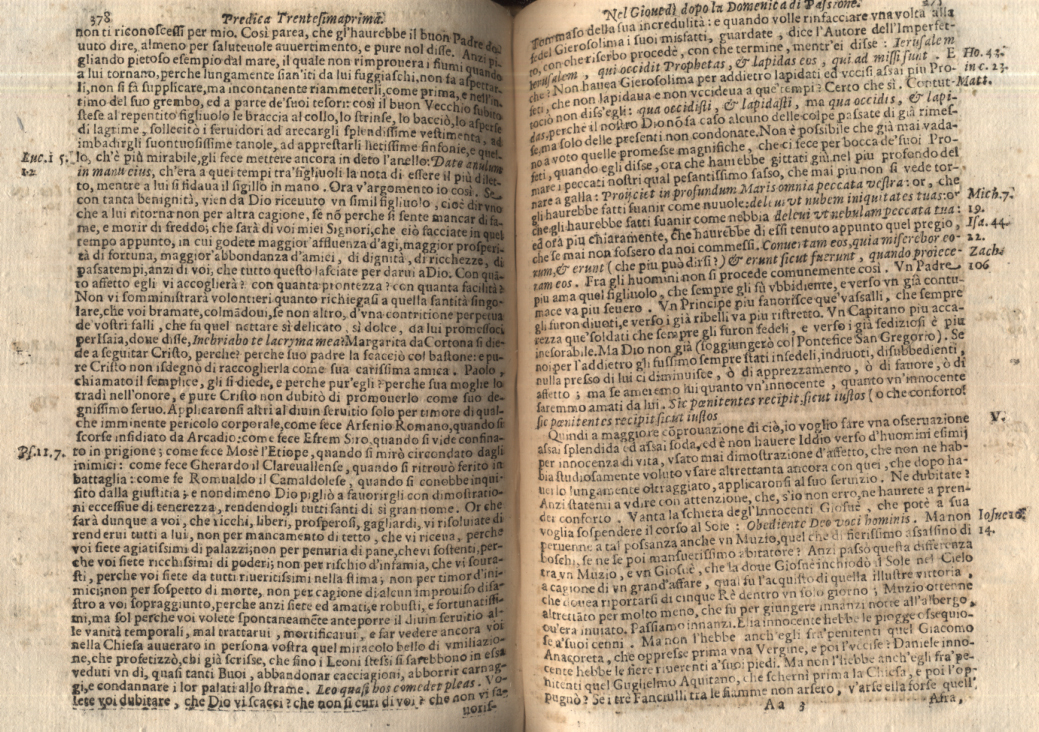 378 Predica Trentesimaprima.
non ti riconoscessi per mio. Così parea, che gl'haurebbe il buon Padre do-
uuto dire, almeno per saluteuole auuertimento, e pure nol disse. Anzi pi-
gliando pietoso esempio dal mare, il quale non rimprouera i fiumi quando
a lui tornano, perche lungamente sian'iti da lui fuggiaschi, non fa aspettar-
li, non si fà supplicare, ma incontanente riammetterli, come prima, e nell'in-
timo del suo grembo, ed a parte de'suoi tesori: così il buon Vecchio subito
stese al repentito figliuolo le braccia al collo, lo strinse, lo bacciò, lo asperse
di lagrime, sollecitò i seruidori ad arecargli splendissime vestimenta, ad
imbadirgli suontuosissime tanole, ad apprestarli lietissime sinfonie, e quel-
Luc.15. lo, ch'è più mirabile, gli fece mettere ancora in deto l'anello: Date anulum
22 in manu eius, ch'era a quei tempi tra'figliuoli la nota di essere il più dilet-
to, mentre a lui si fidaua il sigillo in mano. Ora v'argomento io così. Se
con tanta benignità, vien da Dio riceuuto vn simil figliuolo, cioè di vno
che a lui ritorna non per altra cagione, se nõ perche si sente mancar di fa-
me, e morir di freddo; che sarà di voi miei Signori, che ciò facciate in quel
tempo appunto, in cui godete maggior'affluenza d'agi, maggior prosperi-
tà di fortuna, maggior'abbondanza d'amici, di dignità, di ricchezze, di
passatempi, anzi di voi, che tutto questo lasciate per darui a Dio. Con quã-
to affetto egli vi accoglierà? con quanta prontezza? con quanta facilità?
Non vi somministrarà volontieri quanto richiegasi a quella santità singo-
lare, che voi bramate, colmãdoui, se non altro, d'vna contritione perpetua
de vostri falli, che fu quel nettare sì delicato, sì dolce, da lui promessoci
per Isaia, doue disse, Inebriabo te lacryma mea? Margarita da Cortona si die-
de a seguitar Cristo, perche? perche suo padre la scacciò col bastone: e pu-
re Cristo non isdegno di raccoglierla come sua carissima amica. Paolo,
chiamato il semplice, gli si diede, e perche pur'egli? perche sua moglie lo
tradì nell'onore, e pure Cristo non dubitò di promouerlo come suo de-
gnissimo seruo. Applicaronsi altri al diuin seruitio solo per timore di qual-
che imminente pericolo corporale, come fece Arsenio Romano, quando si
scorse insidiato da Arcadio: come fece Efrem Siro, quando si vide confina-
Ps.11.7. to in prigione; come fece Mosè l'Etiope, quando si mirò circondato dagli
inimici: come fece Gherardo il Clareuallense, quando si ritrouò ferito in
battaglia: come fe Romualdo il Camaldolese, quando si conobbe inqui-
sito dalla giustitia; e nondimeno Dio pigliò a fauorirgli con dimostratio-
ni eccessiue di tenerezza, rendendogli tutti santi di sì gran nome. Or che
sarà dunque a voi, che ricchi, liberi, prosperosi, gagliardi, vi risoluiate di
renderui tutti a lui, non per mancamento di tetto, che vi riceua, perche
voi siete agiatissimi di palazzi; non per penuria di pane, che vi sostenti, per-
che voi siete ricchissimi di poderi; non per rischio d'infamia, che vi soura-
sti, perche voi siete da tutti riueritissimi nella stima; non per timor d'ini-
mici; non per sospetto di morte, non per cagione di alcun improuiso disa-
stro a voi sopraggiunto, perche anzi siete ed amati, e robusti, e fortunatissi-
mi, ma sol perche voi volete spontaneamẽte anteporre il diuin seruitio al-
le vanità temporali, mal trattarui, mortificarui, e far vedere ancora voi
nella Chiesa auuerato in persona vostra quel miracolo bello di vmiliazio-
ne, che profetizzò, chi già scrisse, che fino i Leoni stessi si sarebbono in essa
veduti vn dì, quasi tanti Buoi, abbandonar cacciagioni, abborrir carnag-
gi, e condannare i lor palati allo strame. Leo quasi bos comedet pleas. Vo-
lete voi dubitare, che Dio vi scacci? che non si curi di voi? che non vi fa-
uorif-
Nel Giouedì dopo la Domenica di Passione.
Tommaso della sua incredulità: e quando volle rinfacciare vna volta alla
fedel Gierosolima i suoi misfatti, guardate, dice l'Autore dell'Imperfet-
to, con che riserbo procedè, con che termine, mentr'ei disse: Ierusalem
Ierusalem, qui occidit Prophetas, & lapidas eos, qui ad missi sunt. E Ho. 43.
che? Non hauea Gierosolima per addietro lapidati ed vccisi assai più Pro- in c. 23.
feti, che non lapidaua e non vccideua a que'tempi? Certo che sì. Contut- Matt.
tociò non diss'egli: qua occidisti, & lapidasti, ma qua occidis, & lapi-
das, perche il nostro Dio nõ fa caso alcuno delle colpe passate di già rimes-
se, ma solo delle presenti non condonate. Non è possibile che già mai vada-
no a voto quelle promesse magnifiche, che ci fece per bocca de'suoi Pro-
feti, quando egli disse, ora che haurebbe gittati giù nel più profondo del
mare i peccati nostri qual pesantissimo sasso, che mai più non si vede tor-
nare a galla: Projiciet in profundum Maris omnia peccata vestra: or, che
gli haurebbe fatti suanir come nuuole: deleui vt nubem iniquitates tuas: or Mich.7.
che gli haurebbe fatti suanir come nebbia deleui vt nebulam peccata tua: 19.
ed ora più chiaramente, che haurebbe di essi tenuto appunto quel pregio, Isa. 44.
che se mai non fossero da noi commessi. Conuertam eos, quia miserebor eo- 22.
rum, & erunt (che più può dirsi?) & erunt sicut fuerunt, quando proiece- Zach.
ram eos. Fra gli huomini non si procede comunemente così. Vn Padre 106
più ama quel figliuolo, che sempre gli fù vbbidiente, e verso vn già contu-
mace va più seuero. Vn Principe più fauorisce que'vassalli, che sempre
gli furon diuoti, e verso i già ribelli va più ristretto. Vn Capitano più acca-
rezza que'soldati che sempre gli furon fedeli, e verso i già sediziosi è più
inesorabile. Ma Dio non già (soggiungerò col Pontefice San Gregorio). Se
noi per l'addietro gli fussimo sempre stati infedeli, indiuoti, disubbedienti,
nulla presso di lui ci diminuisce, ò di apprezzamento, ò di fauore, ò di
affetto; ma se ameremo lui quanto vn'innocente, quanto vn'innocente
saremmo amati da lui. Sic pœnitentes recipit, sicut iustos (o che conforto!
sic pœnitentes recipit sicut iustos
Quindi a maggiore cõprouazione di ciò, io voglio fare vna osseruazione V.
assai splendida ed assai soda, ed è non hauere Iddio verso d'huomini esimij
per innocenza di vita, vsato mai dimostrazione d'affetto, che non ne hab-
bia studiosamente voluto vsare altrettanta ancora con quei, che dopo ha-
uerlo lungamente oltraggiato, applicaronsi al suo seruizio. Ne dubitate?
Anzi statemi a vdire con attenzione, che, s'io non erro, ne haurete a pren-
der conforto. Vanta la schiera degl'Innocenti Giosuè, che potè a sua
voglia sospendere il corso al Sole: Obediente Deo voci hominis. Ma non Iosue 10.
peruenne a tal possanza anche vn Muzio, quel che di fierissimo assassino di 14.
boschi, se ne fe poi mansuetissimo abitatore? Anzi passò questa differenza
tra vn Muzio, e vn Giosuè, che la doue Giosuè inchiodò il Sole nel Cielo
a cagione di vn grand'affare, qual fu l'acquisto di quella illustre vittoria,
che douea riportarsi di cinque Rè dentro vn solo giorno; Muzio ottenne
altrettãto per molto meno, che fu per giungere innanzi notte all'albergo,
ou'era inuiato. Passiamo innanzi. Elia innocente hebbe le piogge ossequio-
se a'suoi cenni. Ma non l'hebbe anch'egli fra'penitenti quel Giacomo
Anacoreta, che oppresse prima vna Vergine, e poi l'vccise? Daniele inno-
cente hebbe le fiere riuerenti a'suoi piedi. Ma non l'hebbe anch'egli fra'pe-
nitenti quel Guglielmo Aquitano, che scherni prima la Chiesa, e poi l'op-
pugnò? Se i tre Fanciulli tra le fiamme non arsero, v'arse ella forse quell'
Aa 3 Afra,